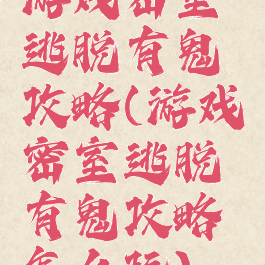 游戏密室
逃脱有鬼
攻略(游戏
密室逃脱
有鬼攻略